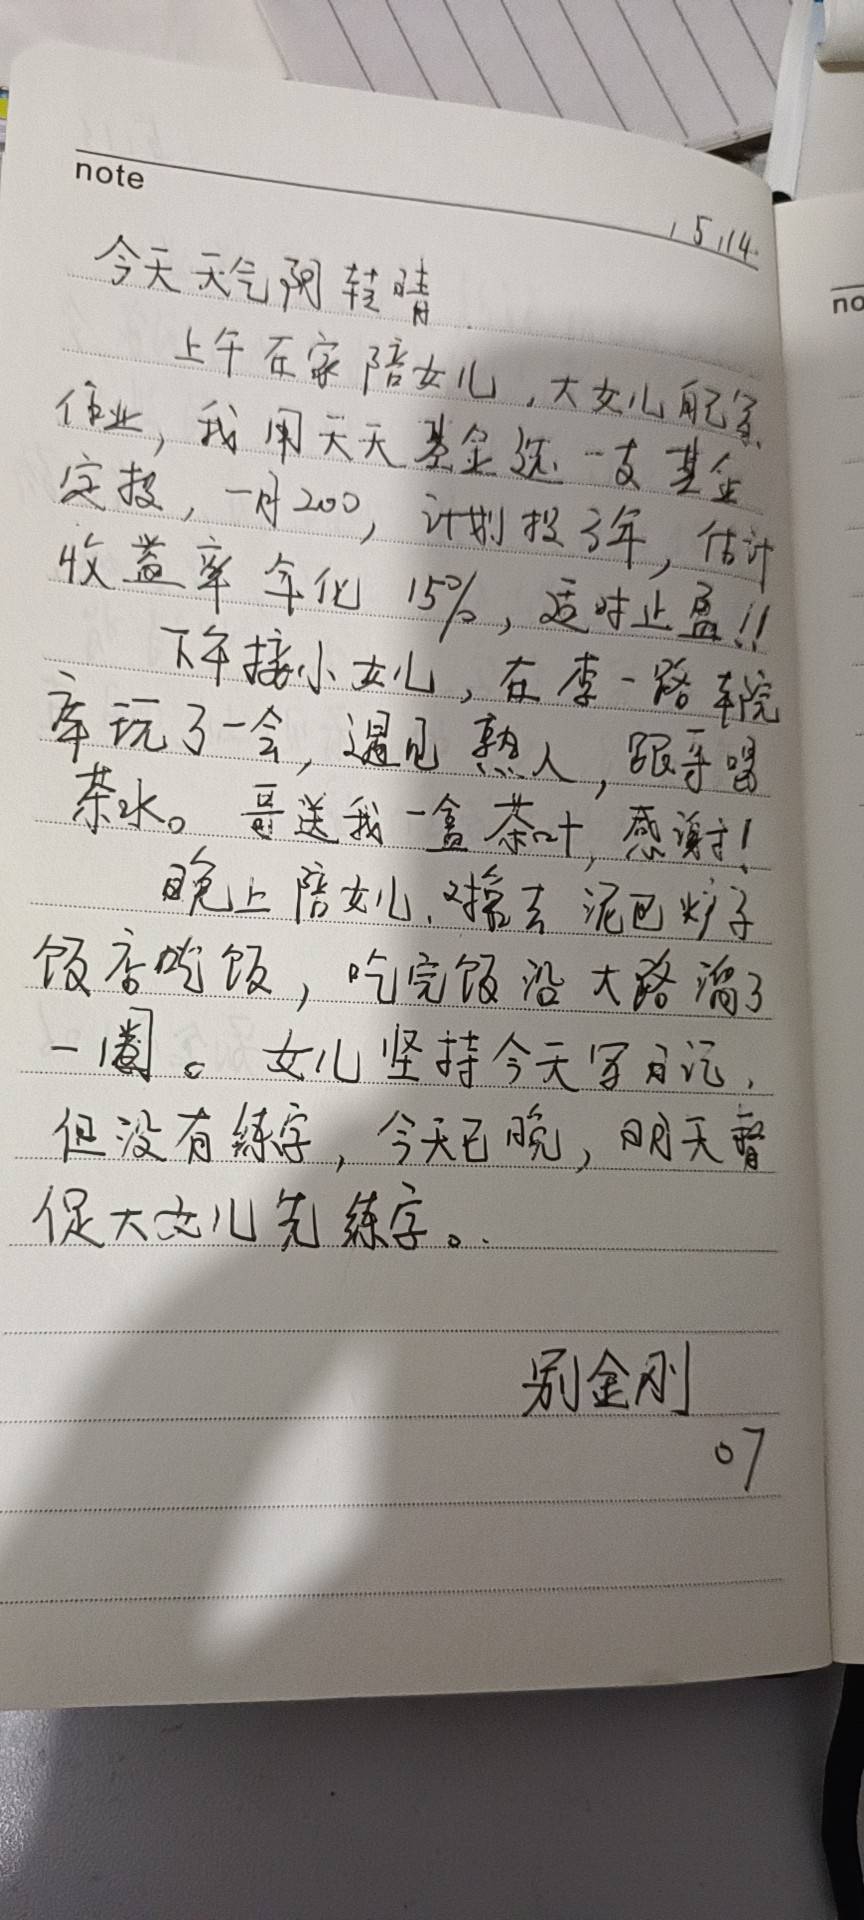 note
5.14
今天天气阴转晴
上午在家陪女儿，大女儿自己写
作业，我用天天基金选一支基金
定投，一月200，计划投3年，估计
收益率年化15%，适时止盈!!
下午接小女儿，在李一路车院
库玩了一会，遇见熟人，跟哥喝
茶水。哥送我一盒茶叶，感谢！
晚上陪女儿、去泥巴炉子
饭店吃饭，吃完饭沿大路溜了
一圈。女儿坚持今天写日记，
但没有练字，今天已晚，明天督
促大女儿先练字。
别金刚
07
no